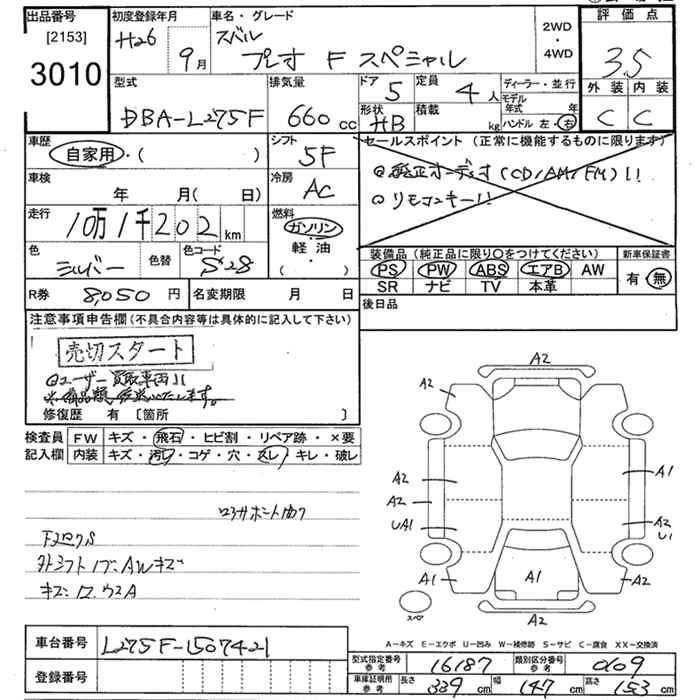 出品番号
[2153]
3010
初度登録年月
H26
9月
車名・グレード
スバル
プレオ F スペシャル
2WD
・
4WD
評価点
3.5
外装 内装
C C
型式
DBA-L275F
排気量
660 cc
ドア 5
定員 4人
形状 HB
積載 kg
ディーラー・並行
モデル年式 年
ハンドル 左・右
車歴
自家用・( )
シフト
5F
車検
年 月( 日)
冷房
AC
走行
10万1千202 km
燃料
ガソリン・
軽・油
( )
色
シルバー
色替
色コード
S28
セールスポイント (正常に機能するものに限ります)
純正オーディオ(CD/AM/FM)!!
リモコンキー!!
装備品 (純正品に限り〇をつけてください)
PS PW ABS エアB AW
SR ナビ TV 本革
新車保証書
有・無
R券 8,050 円
名変期限 月 日
後日品
注意事項申告欄 (不具合内容等は具体的に記入して下さい)
売切スタート
ユーザー買取車両!!
修復歴 有 〔箇所 〕
検査員 FW キズ・飛石・ヒビ割・リペア跡・×要
記入欄 内装 キズ・汚レ・コゲ・穴・スレ・キレ・破レ
A2
A2 A2
A2 A1
A2
UA1 A2
U1
A1 A1 A2
スペア
A2
A-キズ E-エクボ U-凹み W-補修跡 S-サビ C-腐食 XX-交換済
車台番号 L275F-1507421
登録番号
型式指定番号 参考 16187 類別区分番号 参考 0109
車庫証明用 参考 長さ 339 cm 幅 147 cm 高さ 153 cm